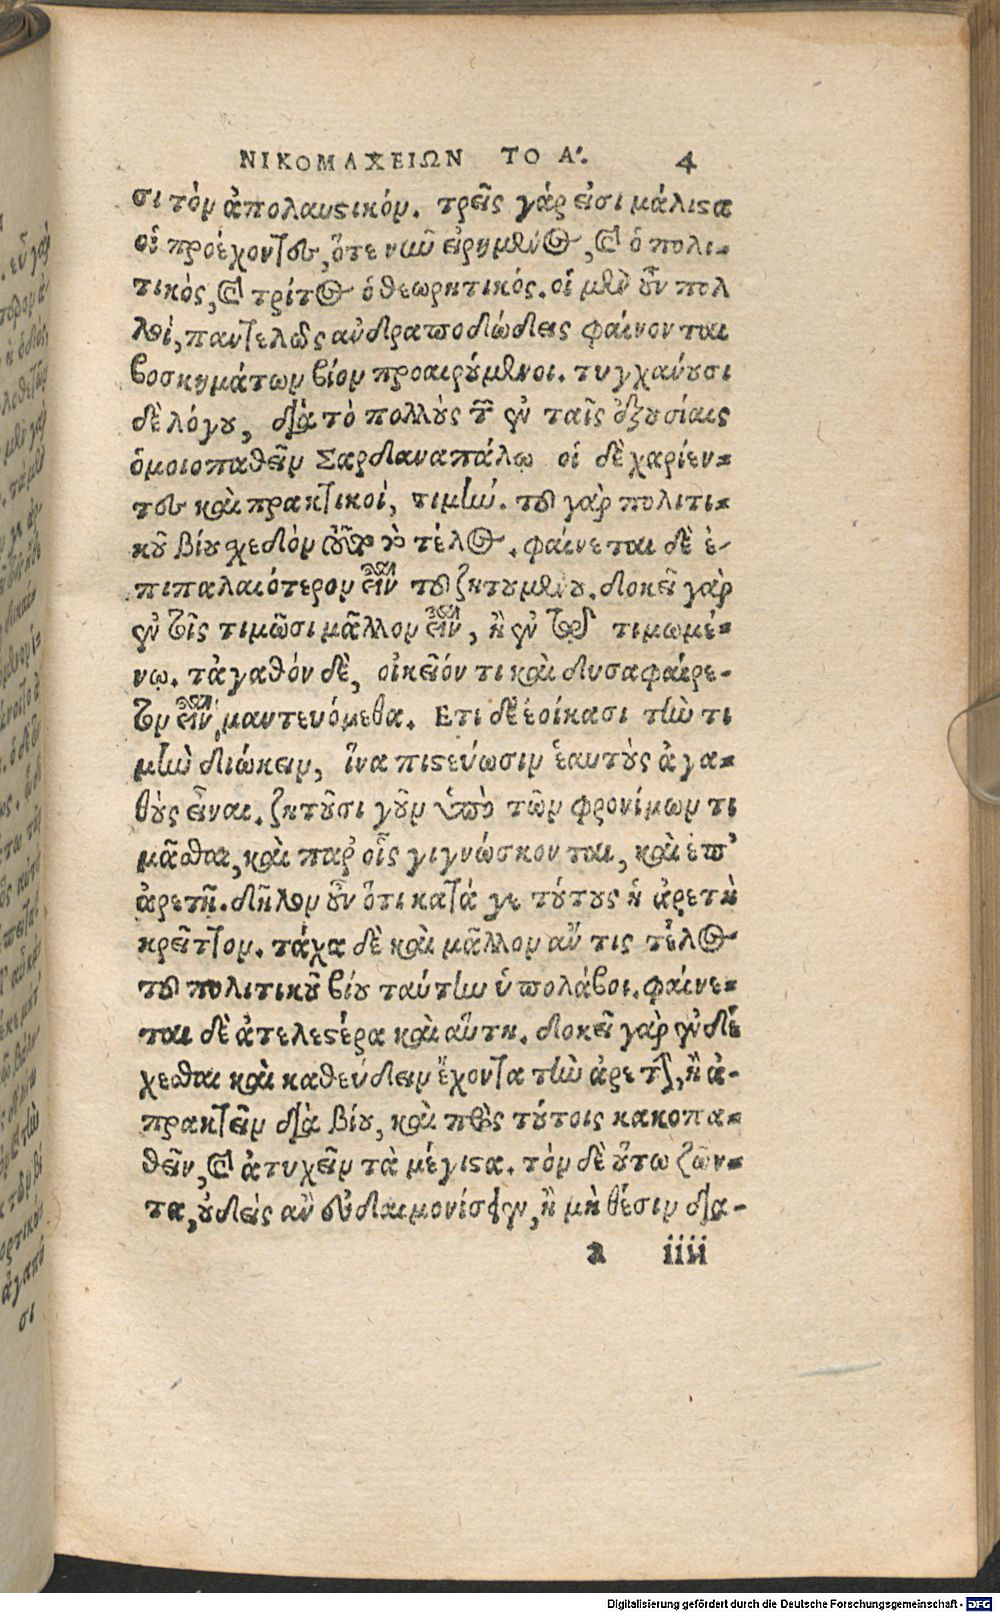 ΝΙΚΟΜΑΧΕΙΩΝ ΤΟ Α'. 4
σι τὸν ἀπολαυστικόν. τρεῖς γάρ εἰσι μάλιστα
οἱ προέχοντες, ὅτε νῦν εἰρημένος, καὶ ὁ πολι-
τικὸς, καὶ τρίτος ὁ θεωρητικός. οἱ μὲν οὖν πολ
λοὶ, παντελῶς ἀνδραποδώδεις φαίνονται
βοσκημάτων βίον προαιρούμενοι. τυγχάνουσι
δὲ λόγου, διὰ τὸ πολλοὺς τῶν ἐν ταῖς ἐξουσίαις
ὁμοιοπαθεῖν Σαρδαναπάλῳ οἱ δὲ χαρίεν-
τες καὶ πρακτικοί, τιμήν. τοῦ γὰρ πολιτι-
κοῦ βίου σχεδὸν τοῦτο τὸ τέλος. φαίνεται δὲ ἐ-
πιπαλαιότερον εἶναι τοῦ ζητουμένου. δοκεῖ γὰρ
ἐν τοῖς τιμῶσι μᾶλλον εἶναι, ἢ ἐν τῷ τιμωμέ-
νῳ. τἀγαθόν δὲ, οἰκεῖόν τι καὶ δυσαφαίρε-
τον εἶναι μαντευόμεθα. Ετι δὲ ἐοίκασι τὴν τι
μὴν διώκειν, ἵνα πιστεύωσιν ἑαυτοὺς ἀγα-
θοὺς εἶναι. ζητοῦσι γοῦν ὑπὸ τῶν φρονίμων τι
μᾶσθαι, καὶ παρ' οἷς γιγνώσκονται, καὶ ἐπ'
ἀρετῇ. δῆλον οὖν ὅτι κατά γε τούτους ἡ ἀρετὴ
κρεῖττον. τάχα δὲ καὶ μᾶλλον ἄν τις τέλος
τοῦ πολιτικοῦ βίου ταύτην ὑπολάβοι. φαίνε-
ται δὲ ἀτελεστέρα καὶ αὕτη. δοκεῖ γὰρ ἐνδέ
χεσθαι καὶ καθεύδειν ἔχοντα τὴν ἀρετὴν, ἢ ἀ-
πρακτεῖν διὰ βίου, καὶ πρὸς τούτοις κακοπα-
θεῖν, καὶ ἀτυχεῖν τὰ μέγιστα. τὸν δὲ οὕτω ζῶν-
τα, οὐδεὶς ἂν εὐδαιμονίσειεν, ἢ μὴ θέσιν δια-
a iiii
Digitalisierung gefördert durch die Deutsche Forschungsgemeinschaft - DFG